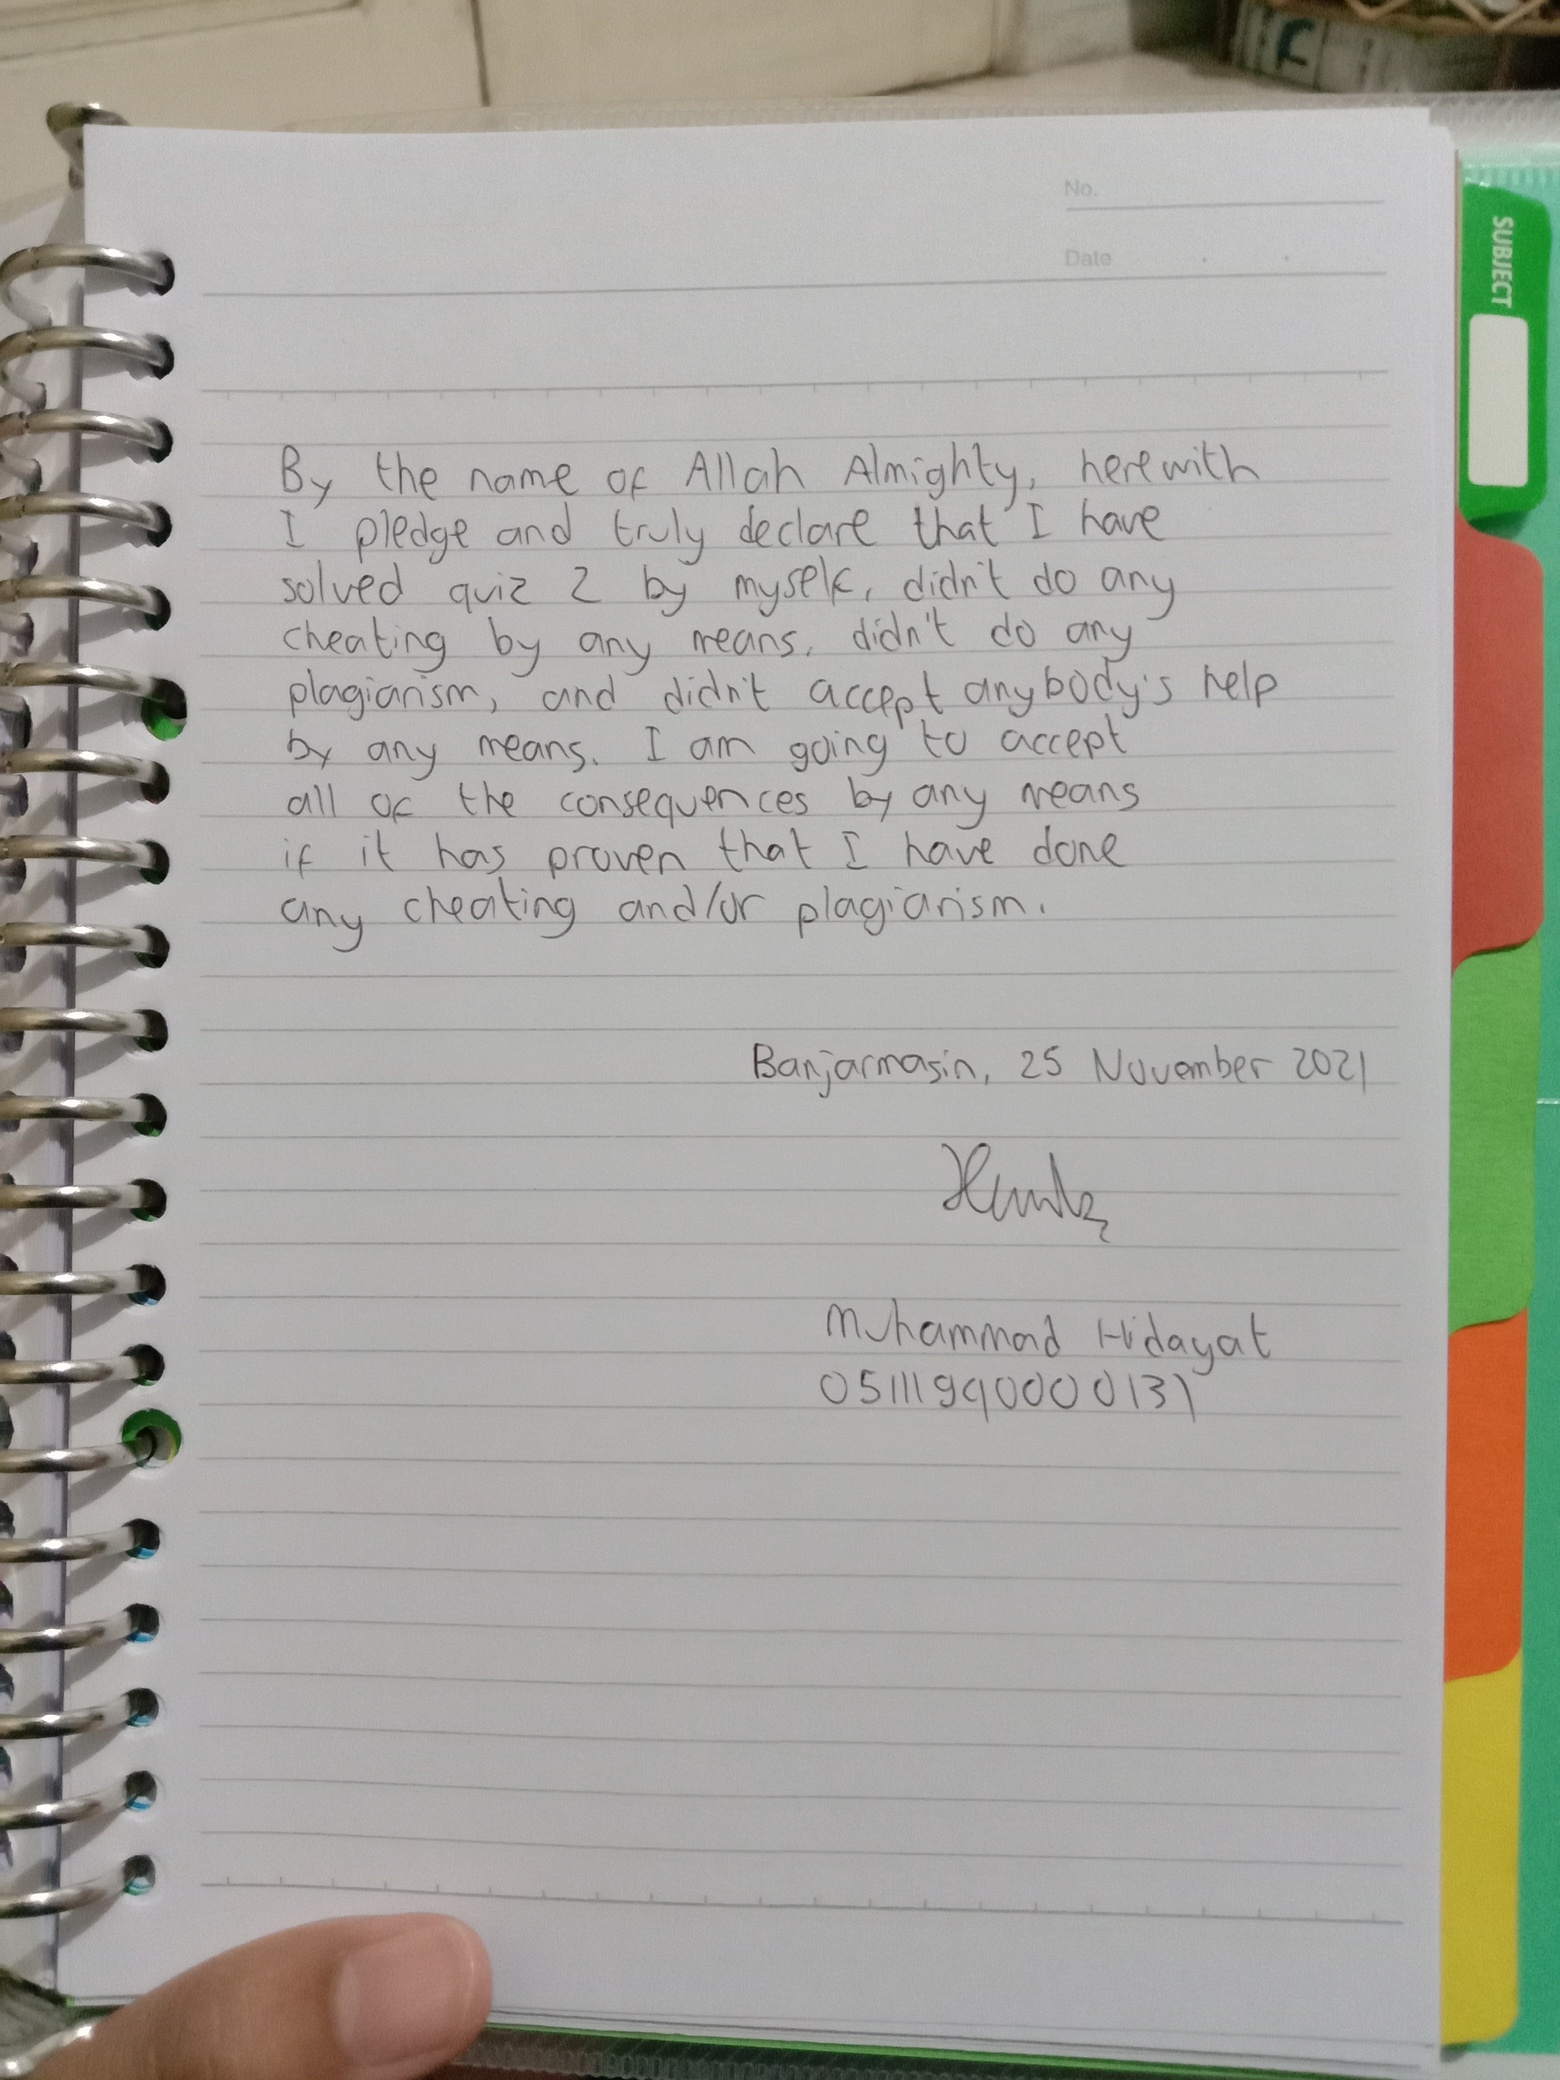 No.
Date
SUBJECT
By the name of Allah Almighty, herewith
I pledge and truly declare that I have
solved quiz 2 by myself, didn't do any
cheating by any means, didn't do any
plagiarism, and didn't accept anybody's help
by any means. I am going to accept
all of the consequences by any means
if it has proven that I have done
any cheating and/or plagiarism.
Banjarmasin, 25 November 2021
Muhammad Hidayat
05111940000131